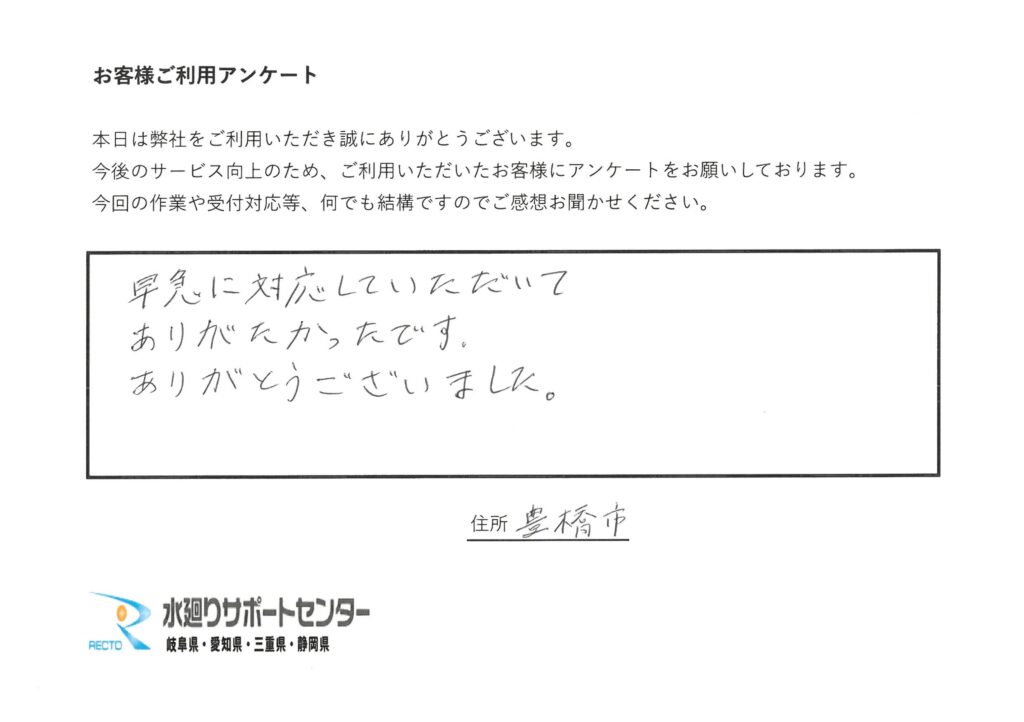 お客様ご利用アンケート
本日は弊社をご利用いただき誠にありがとうございます。
今後のサービス向上のため、ご利用いただいたお客様にアンケートをお願いしております。
今回の作業や受付対応等、何でも結構ですのでご感想お聞かせください。
早急に対応していただいて
ありがたかったです。
ありがとうございました。
住所 豊橋市
RECTO 水廻りサポートセンター
岐阜県・愛知県・三重県・静岡県